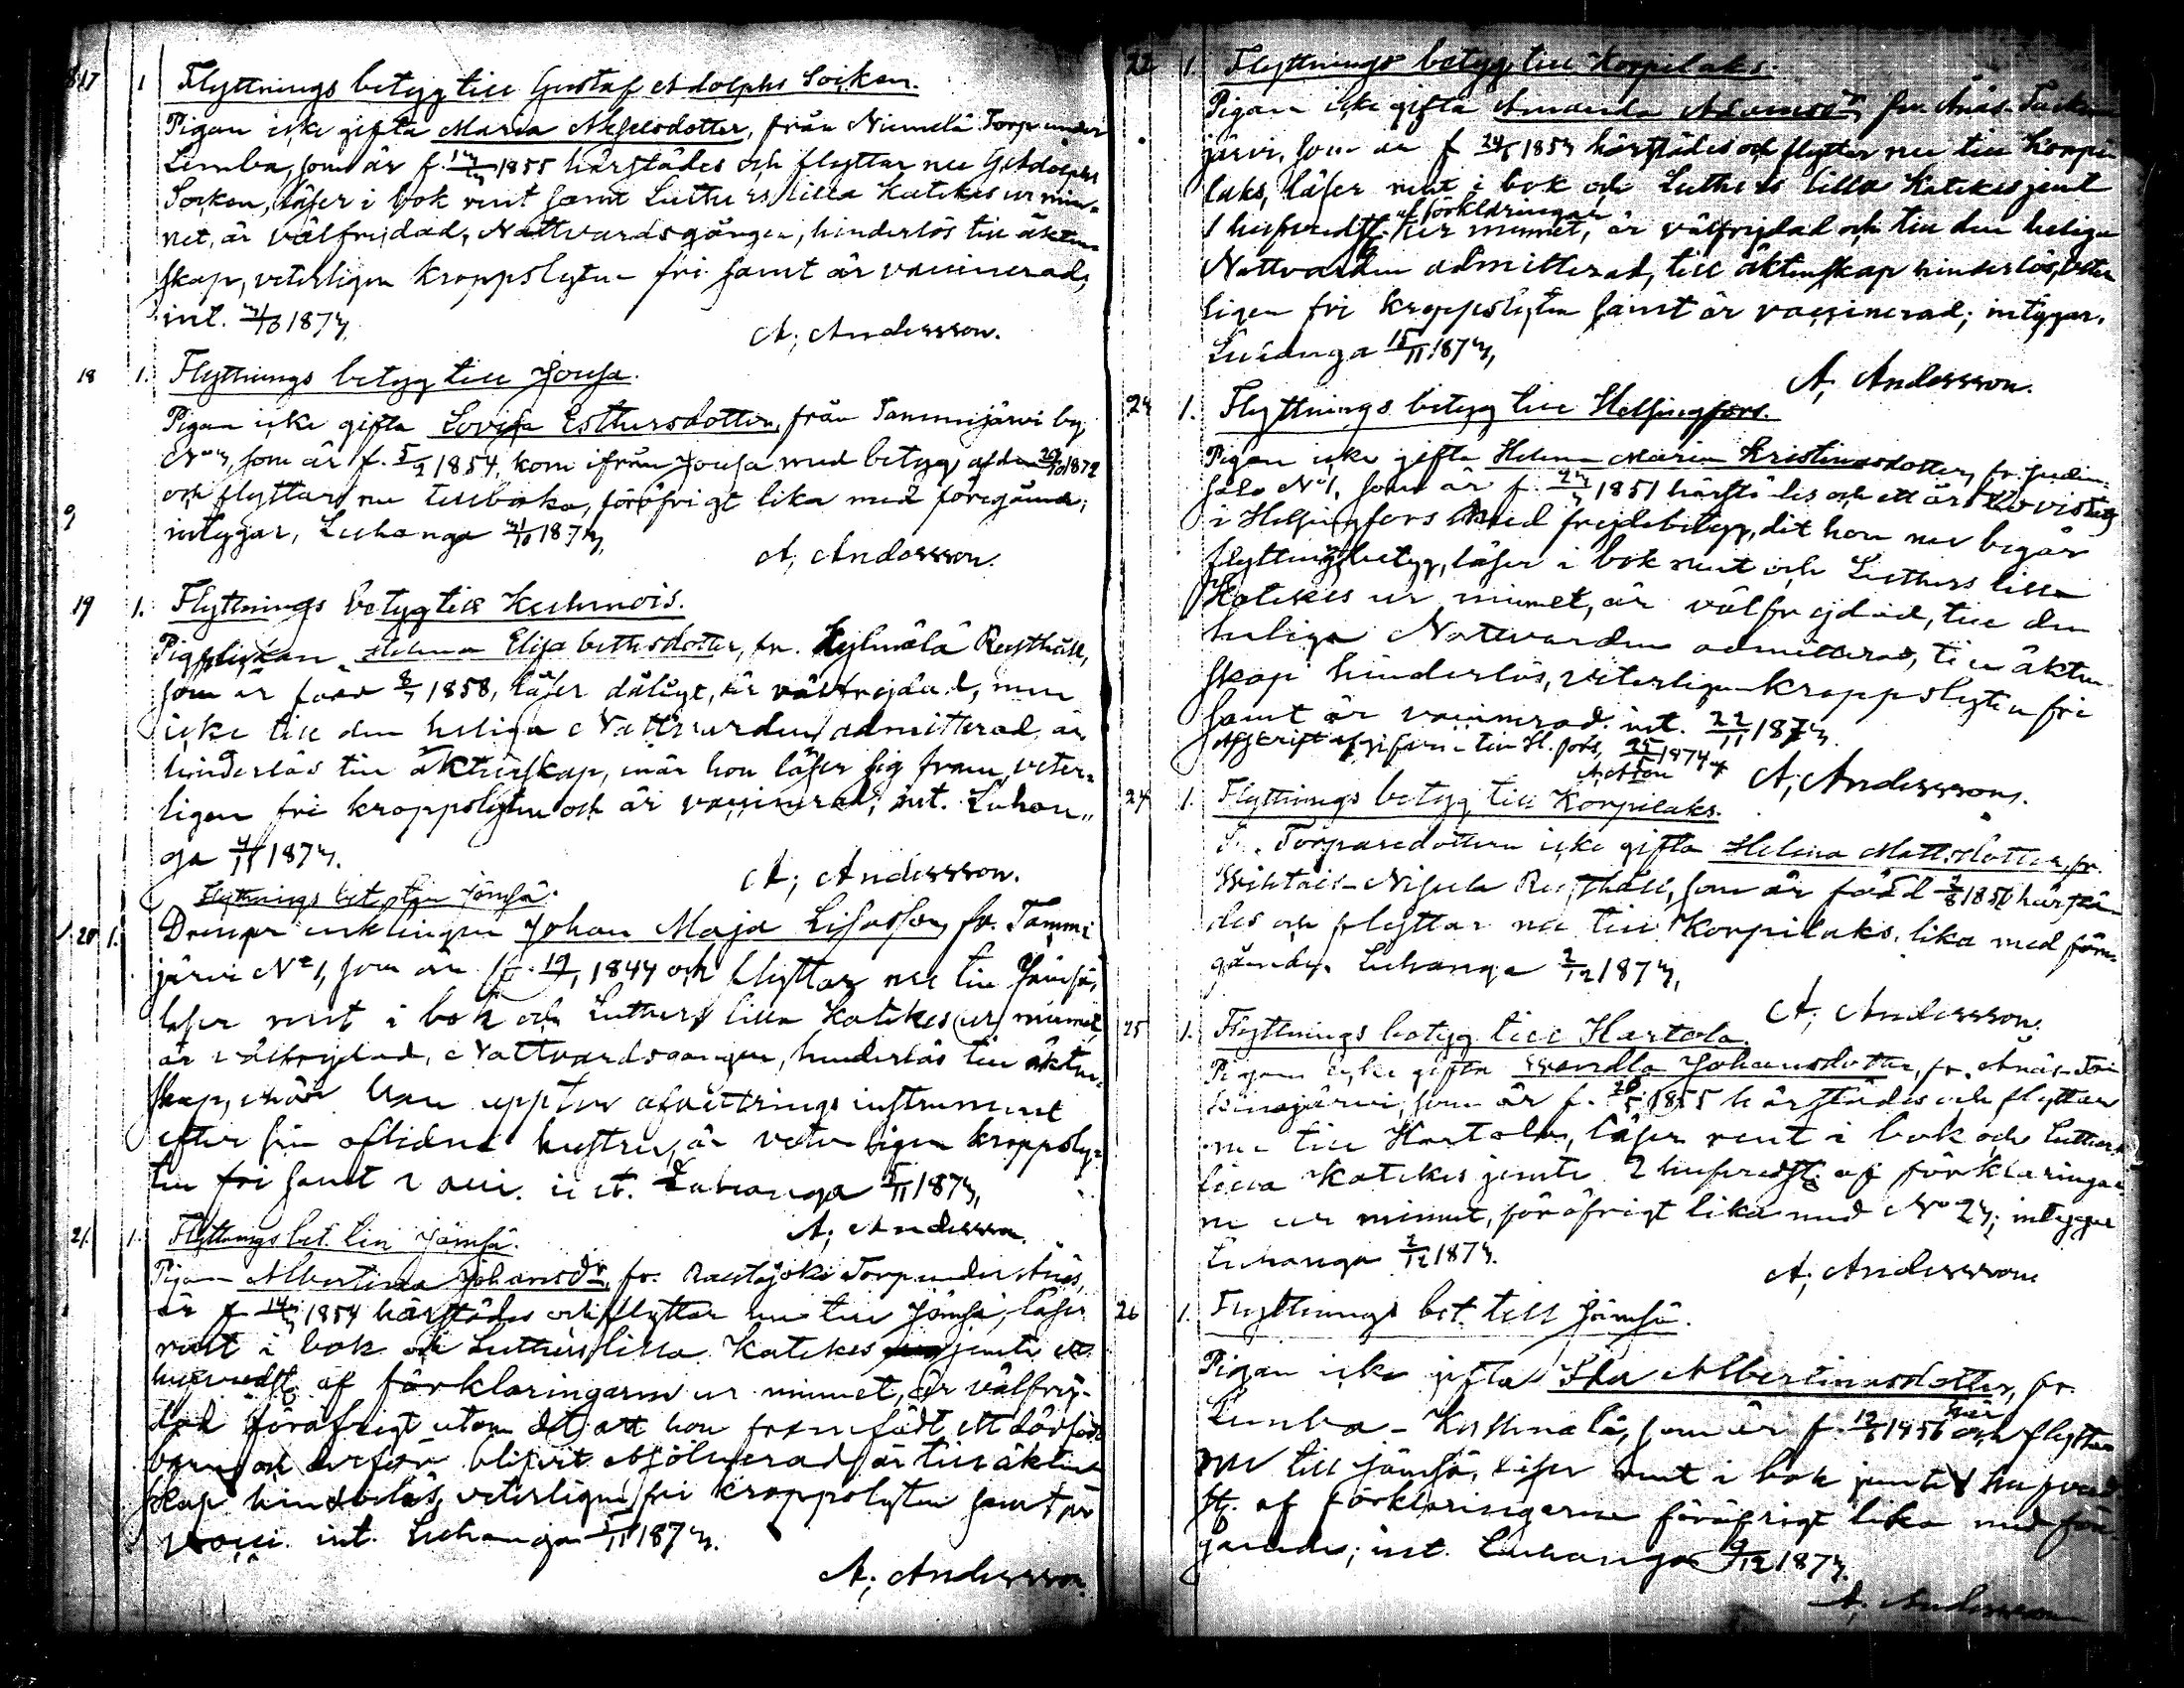 17 1 Flyttnings betyg till Gustaf Adolphs Socken.
Pigan icke gifta Maria Axelsdotter, från Niemelä Torp under
Lemba, som är f. 1855 härstädes och flyttar nu till G. Adolphs
Socken, läser i bok rent samt Luthers lilla Katekes ur min-
net, är välfrejdad, Nattvardsgången, hinderlös till äkten-
skap, veterligen kroppslyten fri samt är vaccinerad;
int. 1873.
A; Andersson.
18 1. Flyttnings betyg till Jousa.
Pigan icke gifta Lovisa Esthersdotter, från Tammijärvi by
som är f. 5/9 1854, kom ifrån Jousa med betyg af den 1872
och flyttar nu tillbaka, föröfrigt lika med föregående;
intygar, Luhanga 1873,
A; Andersson.
19 1. Flyttnings betyg till Kuhmois.
Pigflickan Helena Elisabethsdotter, fr. Kylmälä Rusthåll,
som är född 1858, läser dåligt, är välfrejdad, men
icke till den heliga Nattvarden admitterad, är
hinderlös till äktenskap, när hon läser sig fram, veter-
ligen fri kroppslyten och är vaccinerad; int. Luhan-
ga 1873.
A; Andersson.
Flyttnings bet. till Jämsä.
20 1. Drengen enklingen Johan Maja Lisasson, fr. Tammi
järvi No 1, som är f. 1844 och flyttar nu till Jämsä,
läser rent i bok och Luthers lilla Katekes ur minnet,
är välfrejdad, Nattvardsgången, hinderlös till äkten-
skap, när han uppter afvittrings instrument
efter sin aflidna hustru, är veterligen kroppsly-
ten fri samt vacci. int. Luhanga 1873,
A; Andersson.
21. 1. Flyttnings bet. till Jämsä.
Pigan Albertina Johansdr, fr. Rautajoki Torp under Anäs,
är f. 1854 härstädes och flyttar nu till Jämsä, läser
rent i bok och Luthers lilla Katekes jemte ett
hufvudst. af förklaringarne ur minnet, är välfrej-
dad föröfrigt utom det att hon framfödt ett dödfödt
barn och derför blifvit absolverad är till äkten-
skap hinderlös, veterligen fri kroppslyten samt är
vacci. int. Luhanga 1873.
A; Andersson.
22 1. Flyttnings betyg till Korpilaks.
Pigan icke gifta Amanda Adamsdr, fr. Anäs
järvi, som är f. 1853 härstädes och flyttar nu till Korpi-
laks, läser rent i bok och Luthers lilla Katekes jemt
af förklaringar
1 hufvudst. ur minnet, är välfrejdad och till den heliga
Nattvarden admitterad, till äktenskap hinderlös, veter
ligen fri kroppslyten samt är vaccinerad; intygar.
Luhanga 15/11 1873,
A; Andersson.
1. Flyttnings betyg till Helsingfors.
Pigan icke gifta Helena Maria Kristinasdotter, fr.
No 1, som är f. 1851 härstädes och ett år
i Helsingfors med frejdebetyg, dit hon nu begär
flyttningsbetyg, läser i bok rent och Luthers lilla
Katekes ur minnet, är välfrejdad, till den
heliga Nattvarden admitterad, till äkten-
skap hinderlös, veterligen kroppslyten fri
samt är vaccinerad. int. 22/11 1873.
Afskrift af gifven till H. fors, 1874
A; Andersson.
24 1. Flyttnings betyg till Korpilaks.
Torparedottern icke gifta Helena Mattsdotter, fr.
Nisula Rusthåll, som är född 1856 härstä-
des och flyttar nu till Korpilaks. lika med före-
gående. Luhanga 2/12 1873,
A; Andersson.
25 1. Flyttnings betyg till Hartola.
Pigan icke gifta Wendla Johansdotter, fr. Anäs
som är f. 1855 härstädes och flyttar
nu till Hartola, läser rent i bok och Luthers
lilla Katekes jemte 2 hufvudst. af förklaringar
ne ur minnet, föröfrigt lika med No 23; intygar
Luhanga 2/12 1873.
A; Andersson
26 1. Flyttnings bet. till Jämsä.
Pigan icke gifta Ida Albertinasdotter, fr.
här
Lemba - som är f. 1856 och flyttar
nu till Jämsä, läser rent i bok jemte hufvud
st. af förklaringarne föröfrigt lika med före-
gående; int. Luhanga 9/12 1873.
A; Andersson